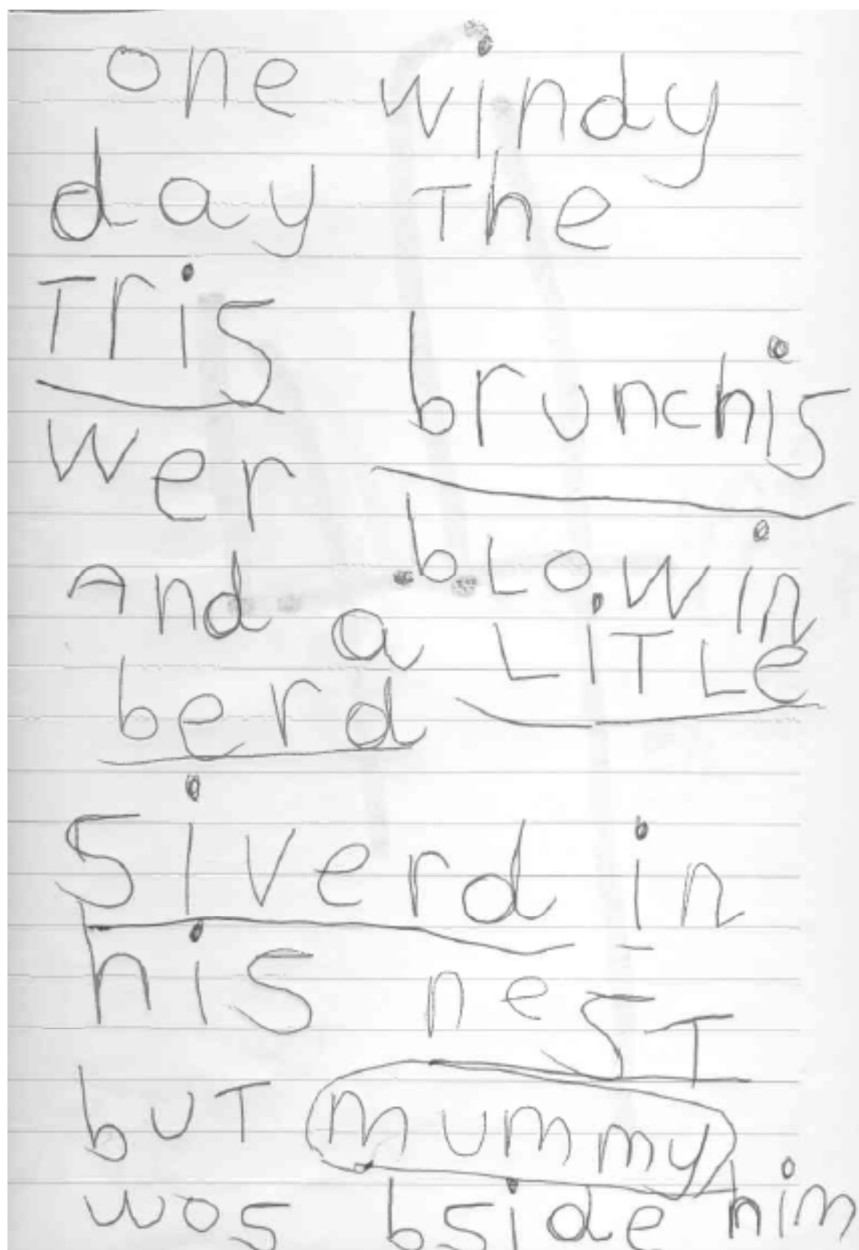 one windy
day The
Tris brunchis
wer blowin
And a LiTLe
berd
Siverd in
his neST
buT mummy
wos bside him